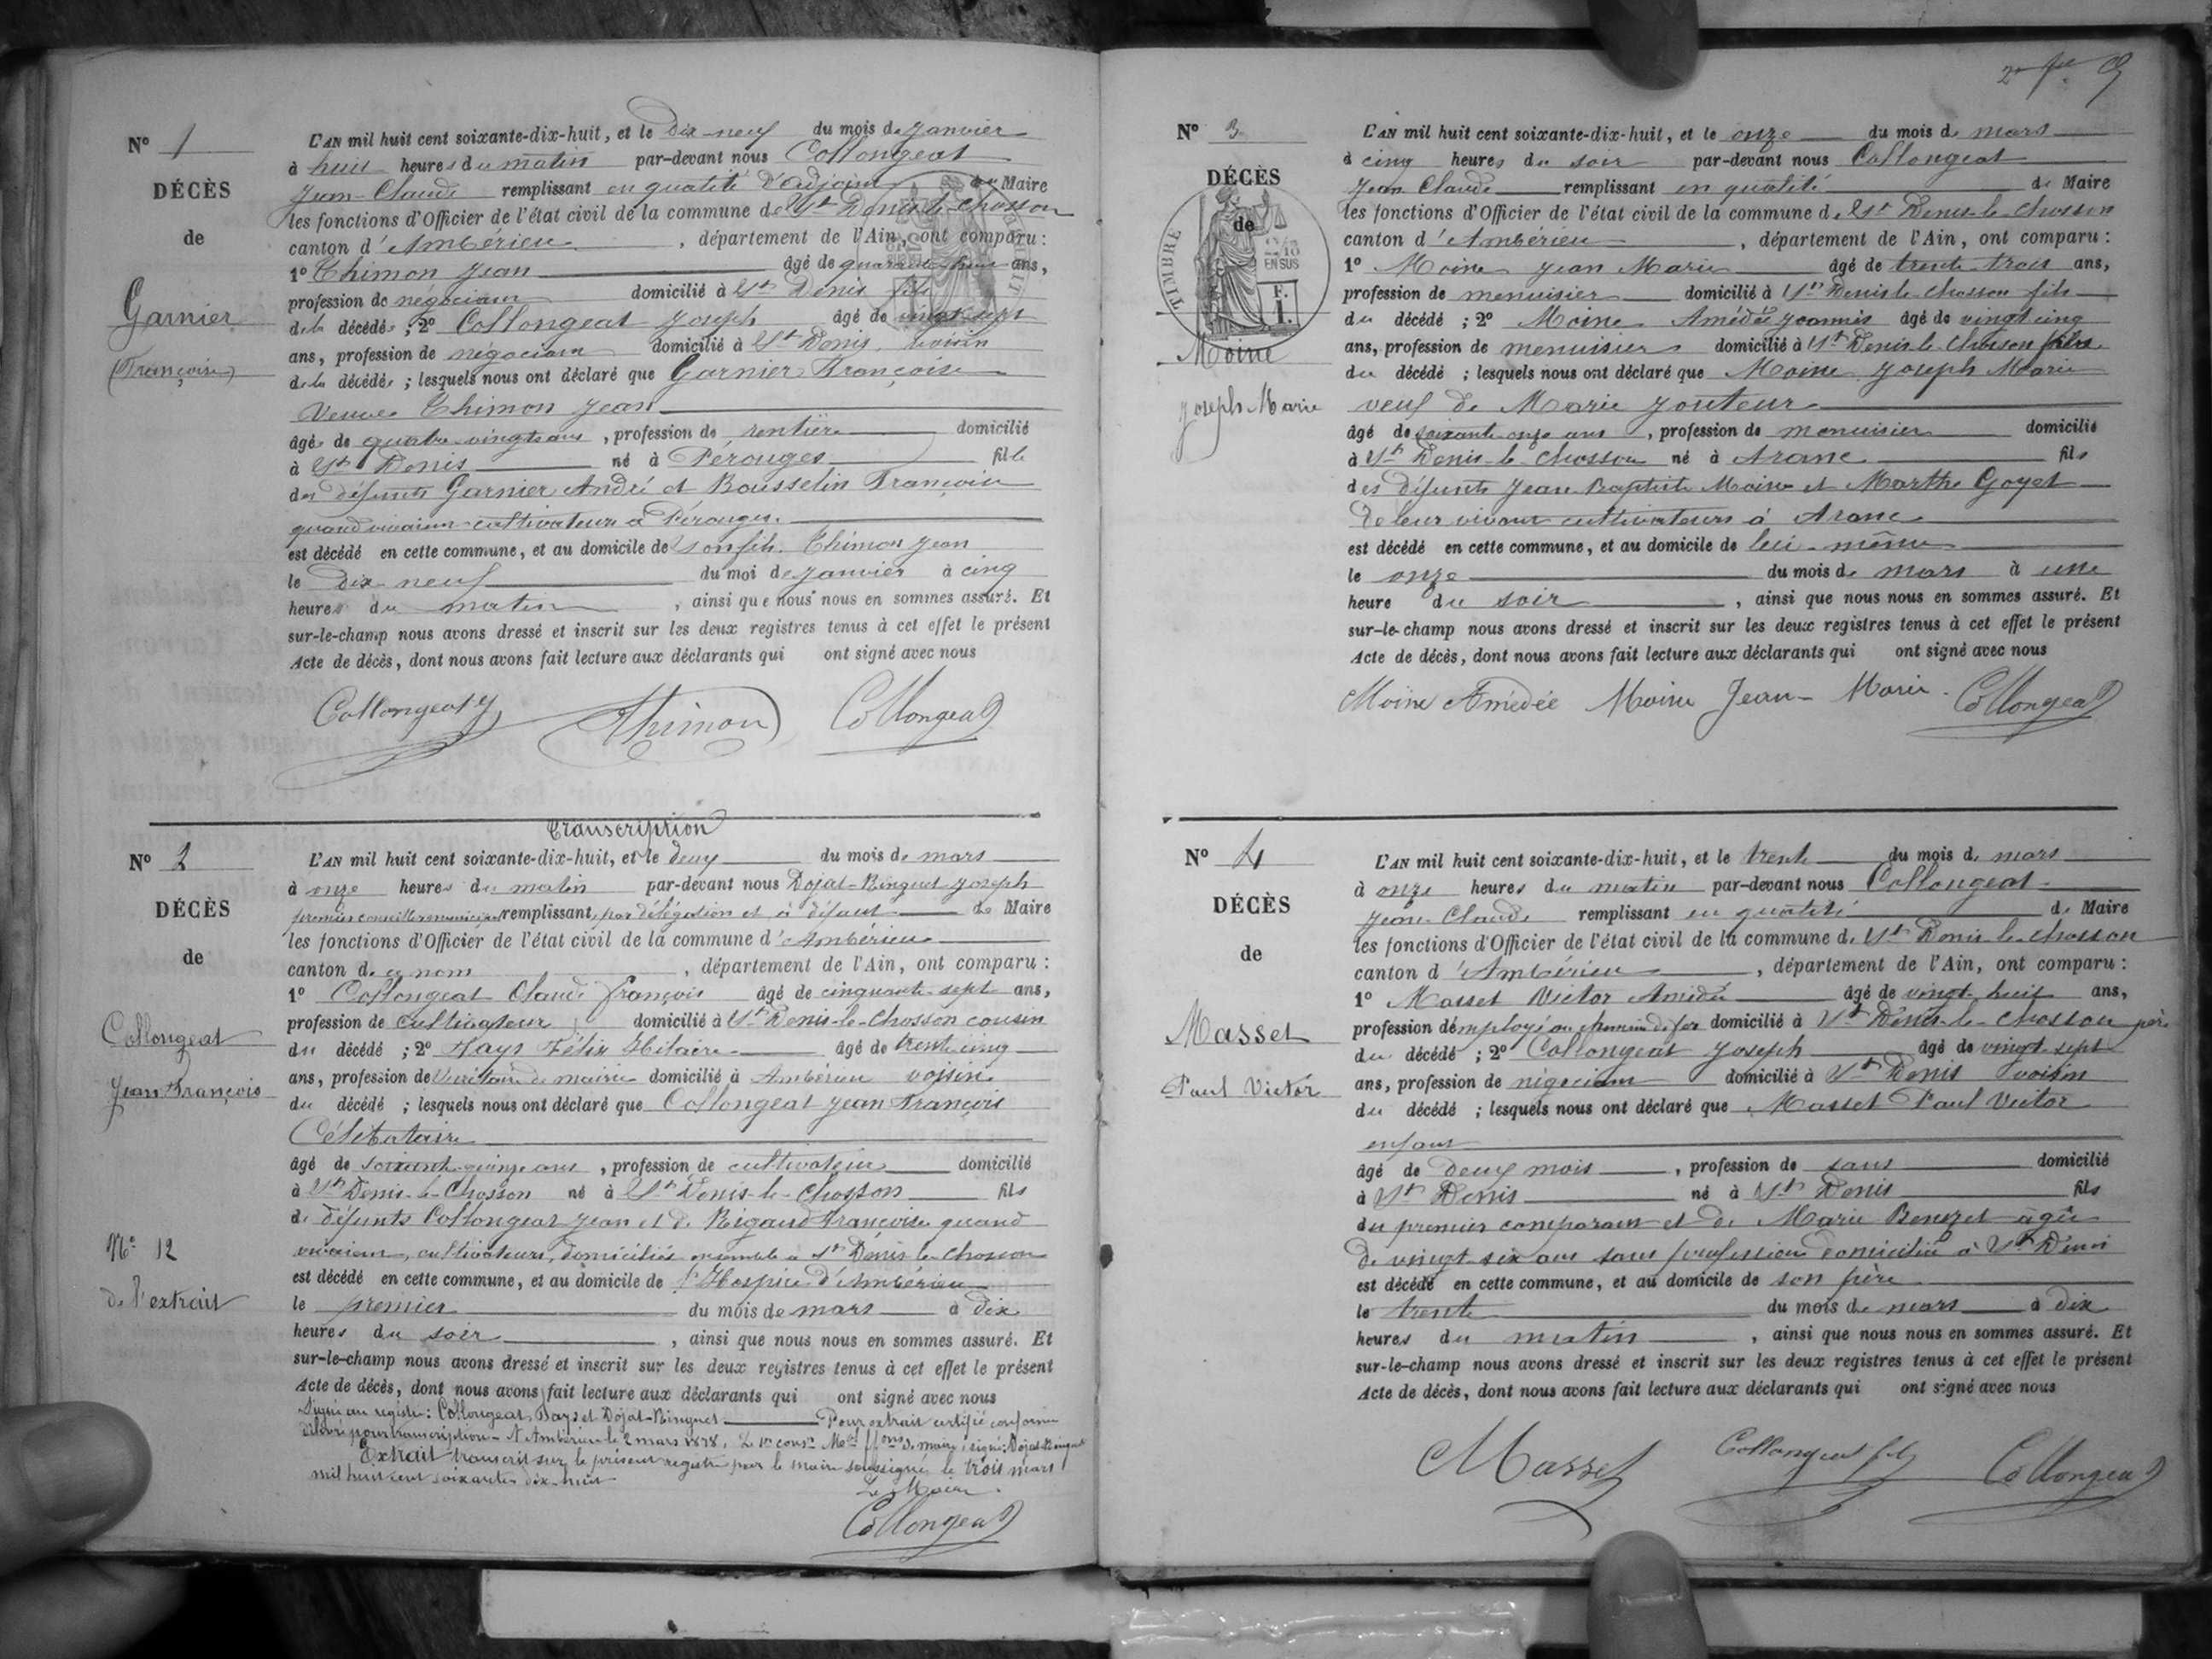 Nº 1
DÉCÈS
de
Garnier
(Françoise)
L'AN mil huit cent soixante-dix-huit, et le Dix-neuf du mois de Janvier
à huit heures du matin par-devant nous Collongeat
Jean-Claude remplissant en qualité d'adjoint au Maire
les fonctions d'Officier de l'état civil de la commune de St Denis le Chosson
canton d'Ambérieu, département de l'Ain, ont comparu :
1º Thimon Jean âgé de quarante huit ans,
profession de négociant domicilié à St Denis fils
de la décédée ; 2º Collongeat Joseph âgé de vingt sept
ans, profession de négociant domicilié à St Denis, voisin
de la décédée ; lesquels nous ont déclaré que Garnier Françoise
Veuve Thimon Jean
âgée de quatre-vingts ans, profession de rentière domicilié
à St Denis né à Pérouges fille
des défunts Garnier André et Bousselin Françoise
quand vivaient cultivateurs à Pérouges.
est décédé en cette commune, et au domicile de son fils Thimon Jean
le dix-neuf du moi de Janvier à cinq
heures du matin, ainsi que nous nous en sommes assuré. Et
sur-le-champ nous avons dressé et inscrit sur les deux registres tenus à cet effet le présent
Acte de décès, dont nous avons fait lecture aux déclarants qui ont signé avec nous
Collongeat Thimon Collongeat
Transcription
Nº 2
DÉCÈS
de
Collongeat
Jean François
Nº 12
De l'extrait
L'AN mil huit cent soixante-dix-huit, et le deux du mois de mars
à onze heures du matin par-devant nous Dojat-Ringuet Joseph
premier conseiller municipal remplissant, par délégation et à défaut de Maire
les fonctions d'Officier de l'état civil de la commune d'Ambérieu
canton de ce nom, département de l'Ain, ont comparu :
1º Collongeat Claude françois âgé de cinquante-sept ans,
profession de cultivateur domicilié à St Denis-le-Chosson cousin
du décédé ; 2º Pays Félix Hilaire âgé de trente cinq
ans, profession de Secrétaire de mairie domicilié à Ambérieu voisin
du décédé ; lesquels nous ont déclaré que Collongeat Jean François
Célibataire
âgé de soixante-quinze ans, profession de cultivateur domicilié
à St Denis-le-Chosson né à St Denis-le-Chosson fils
de défunts Collongeat Jean et de Rigaud Françoise quand
vivaient, cultivateurs, domiciliés ensemble à St Denis le Chosson
est décédé en cette commune, et au domicile de l'Hospice d'Ambérieu
le premier du mois de mars à dix
heures du soir, ainsi que nous nous en sommes assuré. Et
sur-le-champ nous avons dressé et inscrit sur les deux registres tenus à cet effet le présent
Acte de décès, dont nous avons fait lecture aux déclarants qui ont signé avec nous
Signé au registre : Collongeat, Pays et Dojat-Ringuet Pour extrait certifié conforme
délivré pour transcription - A Ambérieu le 2 mars 1878. Le 1er consr Mal ffons de maire, signé : Dojat-Ringuet
Extrait transcrit sur le présent registre par le maire soussigné, le trois mars
mil huit cent soixante dix-huit
Le Maire
Collongeat
Nº 3
DÉCÈS
de
TIMBRE
EN SUS
F.
1.
Moine
Joseph-Marie
L'AN mil huit cent soixante-dix-huit, et le onze du mois de mars
à cinq heures du soir par-devant nous Collongeat
Jean Claude remplissant en qualité de Maire
les fonctions d'Officier de l'état civil de la commune de St Denis-le-Chosson
canton d'Ambérieu, département de l'Ain, ont comparu :
1º Moine Jean Marie âgé de trente-trois ans,
profession de menuisier domicilié à St Denis le Chosson fils
du décédé ; 2º Moine Amédée Joannès âgé de vingt cinq
ans, profession de menuisier domicilié à St Denis-le-Chosson fils
du décédé ; lesquels nous ont déclaré que Moine Joseph Marie
veuf de Marie Jouteur
âgé de soixante-onze ans, profession de menuisier domicilié
à St Denis-le-Chosson né à Aranc fils
des défunts Jean-Baptiste Moine et Marthe Goyet
De leur vivant cultivateurs à Aranc
est décédé en cette commune, et au domicile de lui-même
le onze du mois de mars à une
heure du soir, ainsi que nous nous en sommes assuré. Et
sur-le-champ nous avons dressé et inscrit sur les deux registres tenus à cet effet le présent
Acte de décès, dont nous avons fait lecture aux déclarants qui ont signé avec nous
Moine Amédée Moine Jean-Marie Collongeat
Nº 4
DÉCÈS
de
Masset
Paul Victor
L'AN mil huit cent soixante-dix-huit, et le trente du mois de mars
à onze heures du matin par-devant nous Collongeat
Jean-Claude remplissant en qualité de Maire
les fonctions d'Officier de l'état civil de la commune de St Denis le Chosson
canton d'Ambérieu, département de l'Ain, ont comparu :
1º Masset Victor Amédée âgé de vingt-huit ans,
profession d'employé au chemin de fer domicilié à St Denis-le-Chosson père
du décédé ; 2º Collongeat Joseph âgé de vingt sept
ans, profession de négociant domicilié à St Denis voisin
du décédé ; lesquels nous ont déclaré que Masset Paul Victor
enfant
âgé de deux mois, profession de sans domicilié
à St Denis né à St Denis fils
du premier comparant et de Marie Benezet âgée
de vingt six ans sans profession domiciliée à St Denis
est décédé en cette commune, et au domicile de son père
le trente du mois de mars à dix
heures du matin, ainsi que nous nous en sommes assuré. Et
sur-le-champ nous avons dressé et inscrit sur les deux registres tenus à cet effet le présent
Acte de décès, dont nous avons fait lecture aux déclarants qui ont signé avec nous
Masset Collongeat fils Collongeat